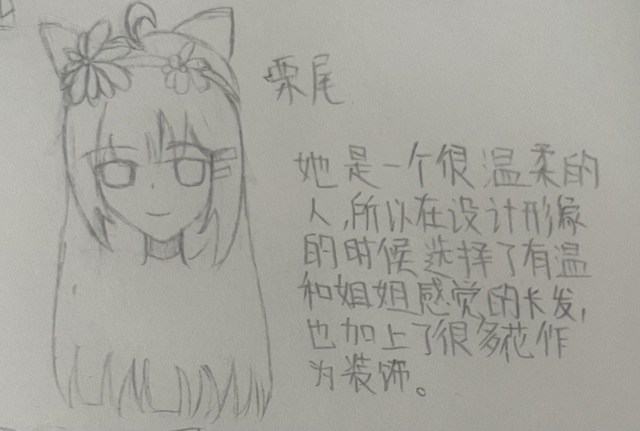 栗尾
她是一个很温柔的
人,所以在设计形象
的时候选择了有温
和姐姐感觉的长发,
也加上了很多花作
为装饰。